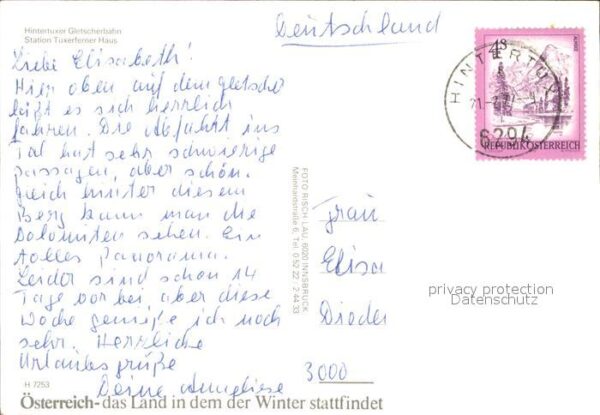 Hintertuxer Gletscherbahn
Station Tuxerferner Haus
Deutschland
Liebe Elisabeth!
Hier oben auf dem Gletscher
läßt es sich herrlich
fahren. Die Abfahrt ins
Tal hat sehr schwierige
passagen, aber schön.
gleich hinter diesem
Berg kann man die
Dolomiten sehen. Ein
tolles Panorama.
Leider sind schon 14
Tage vorbei, aber diese
Woche genieße ich noch
sehr. Herrliche
Urlaubsgrüße
Deine Annegliese
H 7253
Österreich-das Land in dem der Winter stattfindet
FOTO RISCH-LAU, 6020 INNSBRUCK
Meinhardstraße 6, Tel. 0 52 22 - 2 44 33
4S
ALMSEE
REPUBLIK ÖSTERREICH
HINTERTUX
6294
Frau
Elisa
3000
privacy protection
Datenschutz